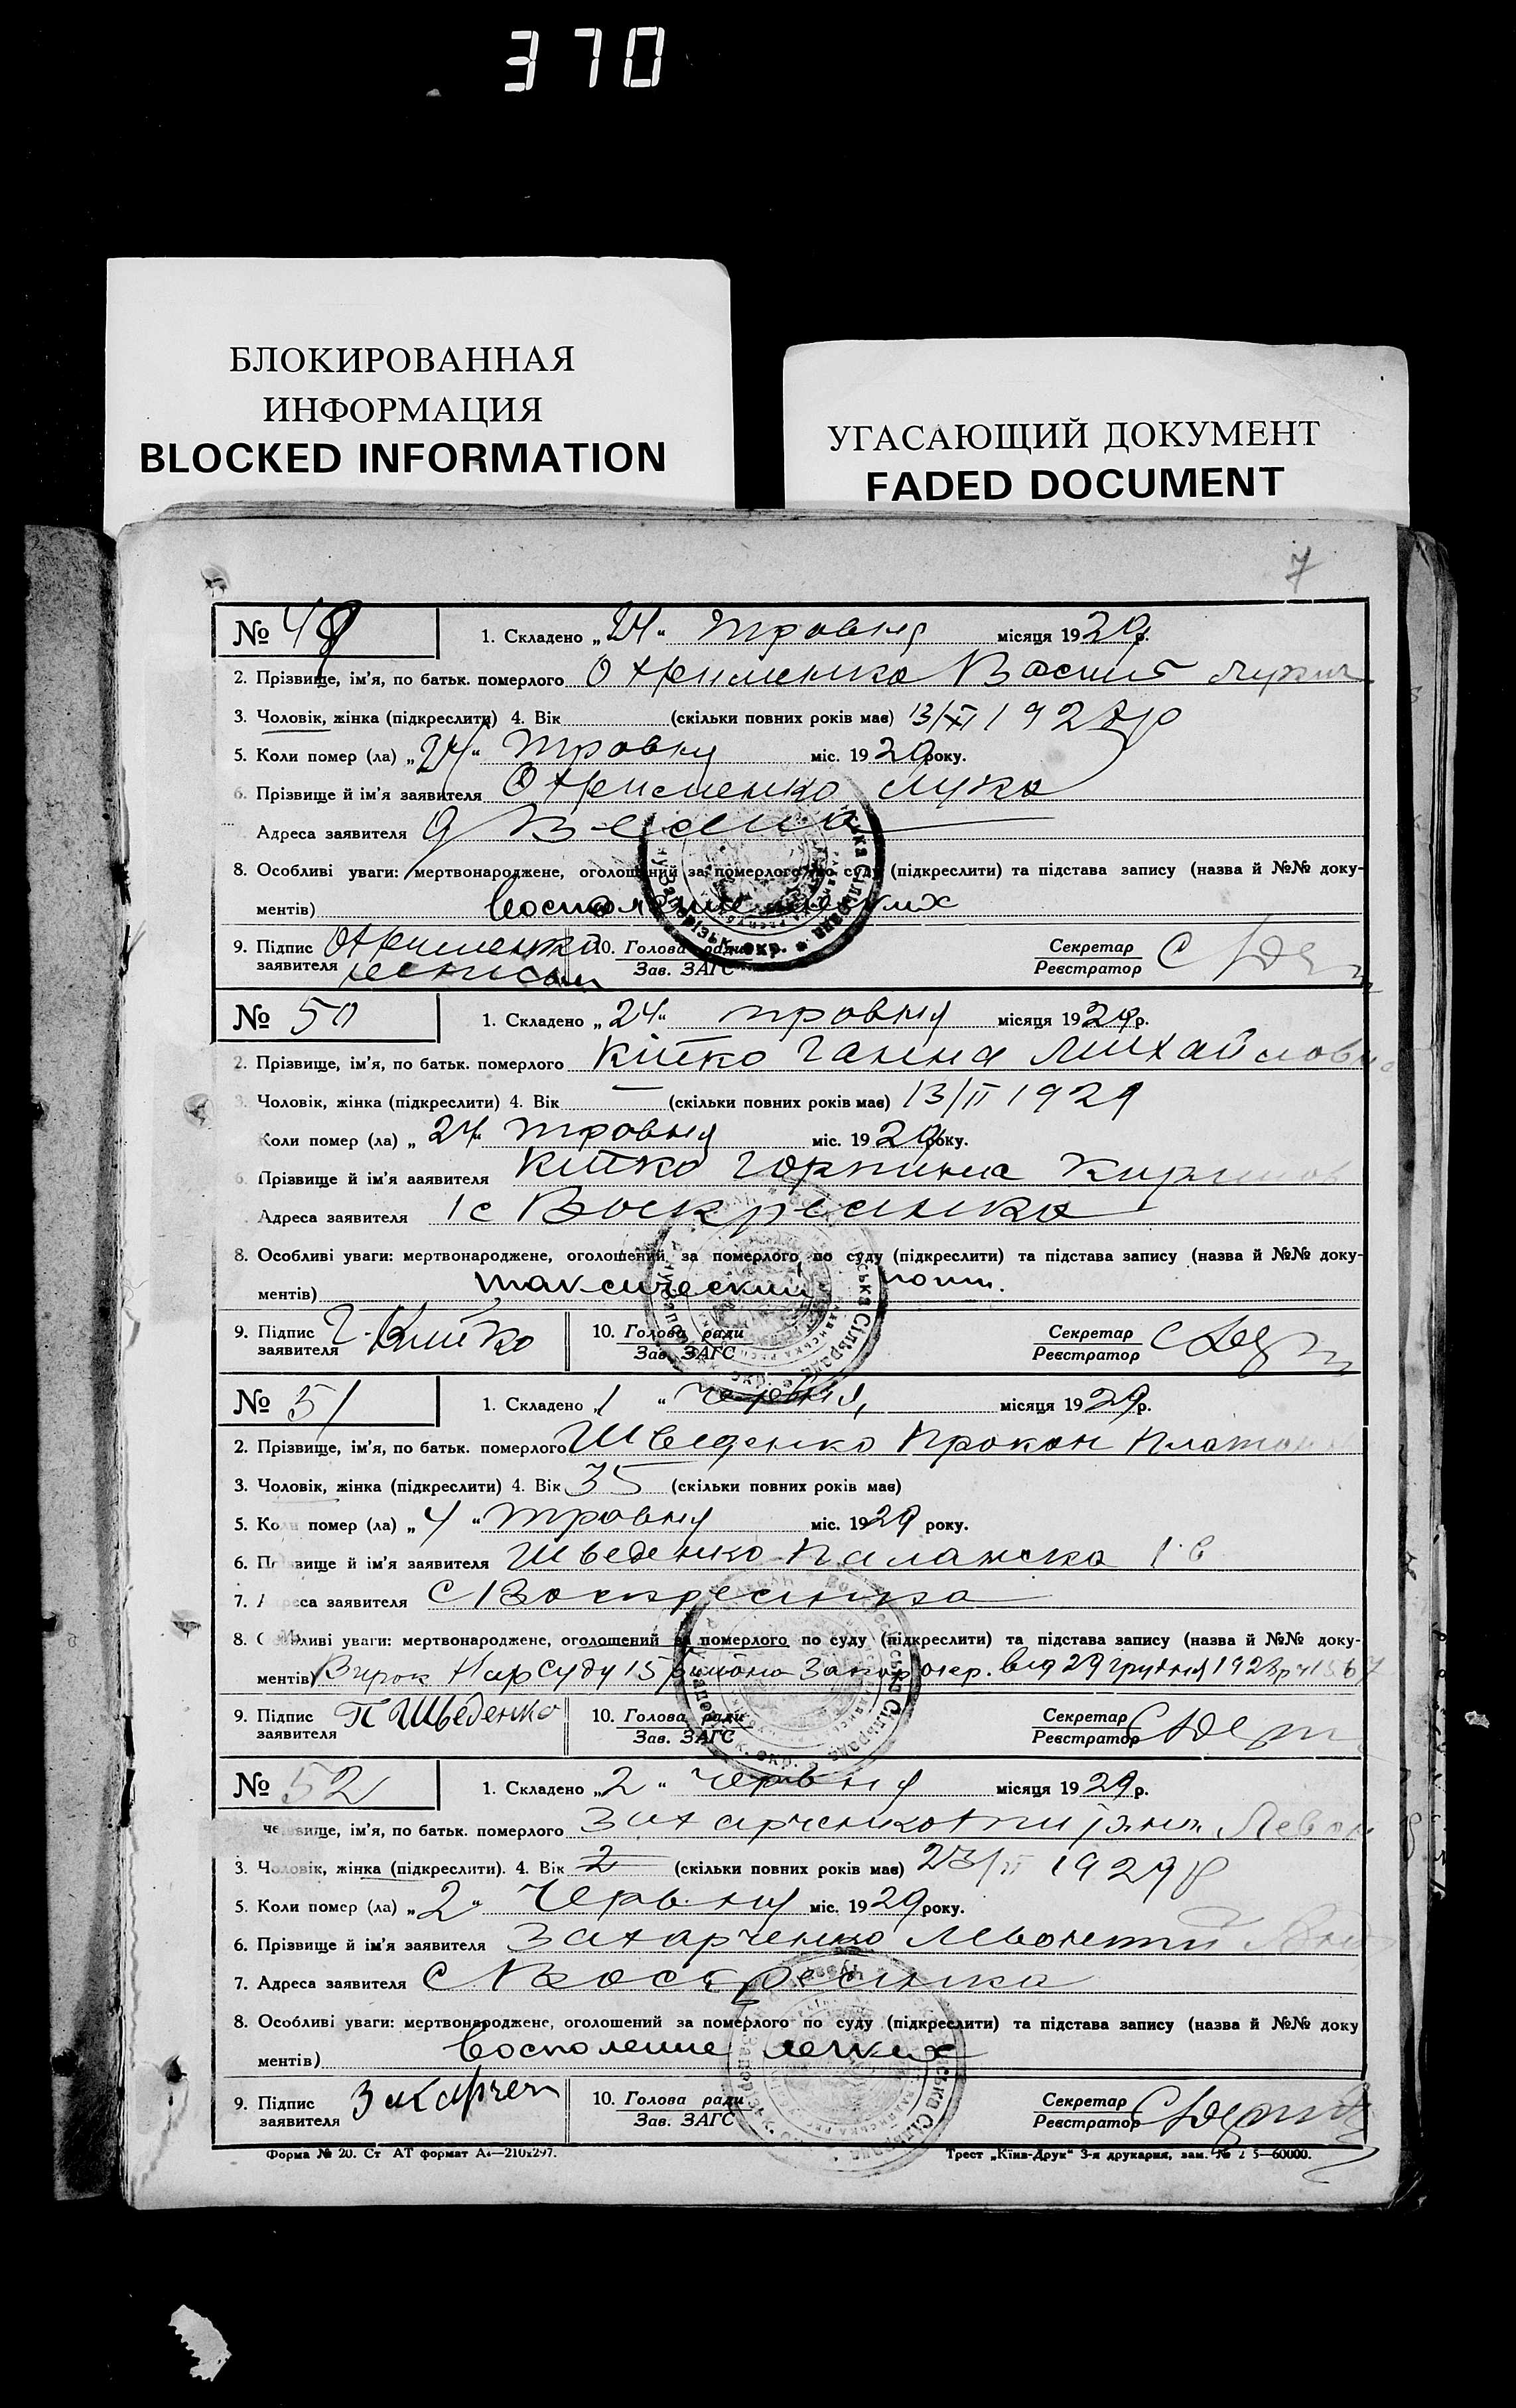 370
БЛОКИРОВАННАЯ
ИНФОРМАЦИЯ
BLOCKED INFORMATION
УГАСАЮЩИЙ ДОКУМЕНТ
FADED DOCUMENT
7
№ 49 1. Складено „24“ травня місяця 1929 р.
2. Прізвище, ім'я, по батьк. померлого Охрименко Василь Лукич
3. Чоловік, жінка (підкреслити) 4. Вік (скільки повних років має) 13/XI 1927 р
5. Коли помер (ла) „24“ травня міс. 1929 року.
6. Прізвище й ім'я заявителя Охрименко Лука
Адреса заявителя
8. Особливі уваги: мертвонароджене, оголошений за померлого по суду (підкреслити) та підстава запису (назва й №№ доку-
ментів)
9. Підпис заявителя Охрименко 10. Голова ради Зав. ЗАГС Секретар Реєстратор
№ 50 1. Складено „24“ травня місяця 1929 р.
2. Прізвище, ім'я, по батьк. померлого Кітко Ганна Михайловна
3. Чоловік, жінка (підкреслити) 4. Вік — (скільки повних років має) 13/II 1929
Коли помер (ла) „24“ травня міс. 1929 року.
6. Прізвище й ім'я заявителя Кітко Горпина
Адреса заявителя с Воскресенка
8. Особливі уваги: мертвонароджене, оголошений за померлого по суду (підкреслити) та підстава запису (назва й №№ доку-
ментів) таксический
9. Підпис заявителя Г. Китко 10. Голова ради Зав. ЗАГС Секретар Реєстратор
№ 51 1. Складено „1“ червня місяця 1929 р.
2. Прізвище, ім'я, по батьк. померлого Шведенко Прокоп Платон
3. Чоловік, жінка (підкреслити) 4. Вік 35 (скільки повних років має)
5. Коли помер (ла) „4“ травня міс. 1929 року.
6. Прізвище й ім'я заявителя Шведенко Палажка
7. Адреса заявителя с Воскресенка
8. Особливі уваги: мертвонароджене, оголошений за померлого по суду (підкреслити) та підстава запису (назва й №№ доку-
ментів) Вирок Нарсуду 15 району Запор окр. від 29 грудня 1928 р
9. Підпис заявителя П Шведенко 10. Голова ради Зав. ЗАГС Секретар Реєстратор
№ 52 1. Складено „2“ червня місяця 1929 р.
2. Прізвище, ім'я, по батьк. померлого Захарченко Левон
3. Чоловік, жінка (підкреслити). 4. Вік 2 (скільки повних років має) 23/II 1929 р
5. Коли помер (ла) „2“ червня міс. 1929 року.
6. Прізвище й ім'я заявителя Захарченко Левонтий
7. Адреса заявителя с Воскресенка
8. Особливі уваги: мертвонароджене, оголошений за померлого по суду (підкреслити) та підстава запису (назва й №№ доку
ментів) Восполение легких
9. Підпис заявителя Захарчен 10. Голова ради Зав. ЗАГС Секретар Реєстратор
Форма № 20. Ст АТ формат А4—210х297. Трест „Київ-Друк“ 3-я друкарня, зам. 60000.